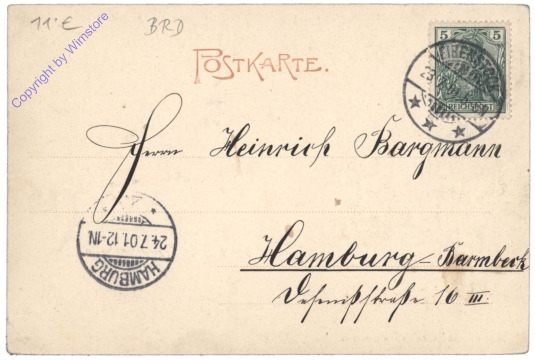 11.- €
BRD
Copyright by Wimstore
POSTKARTE.
5 5
REICHSPOST
23
Herrn Heinrich Bargmann
24.7.01.12-1N
HAMBURG
Hamburg-Barmbeck
16 III.